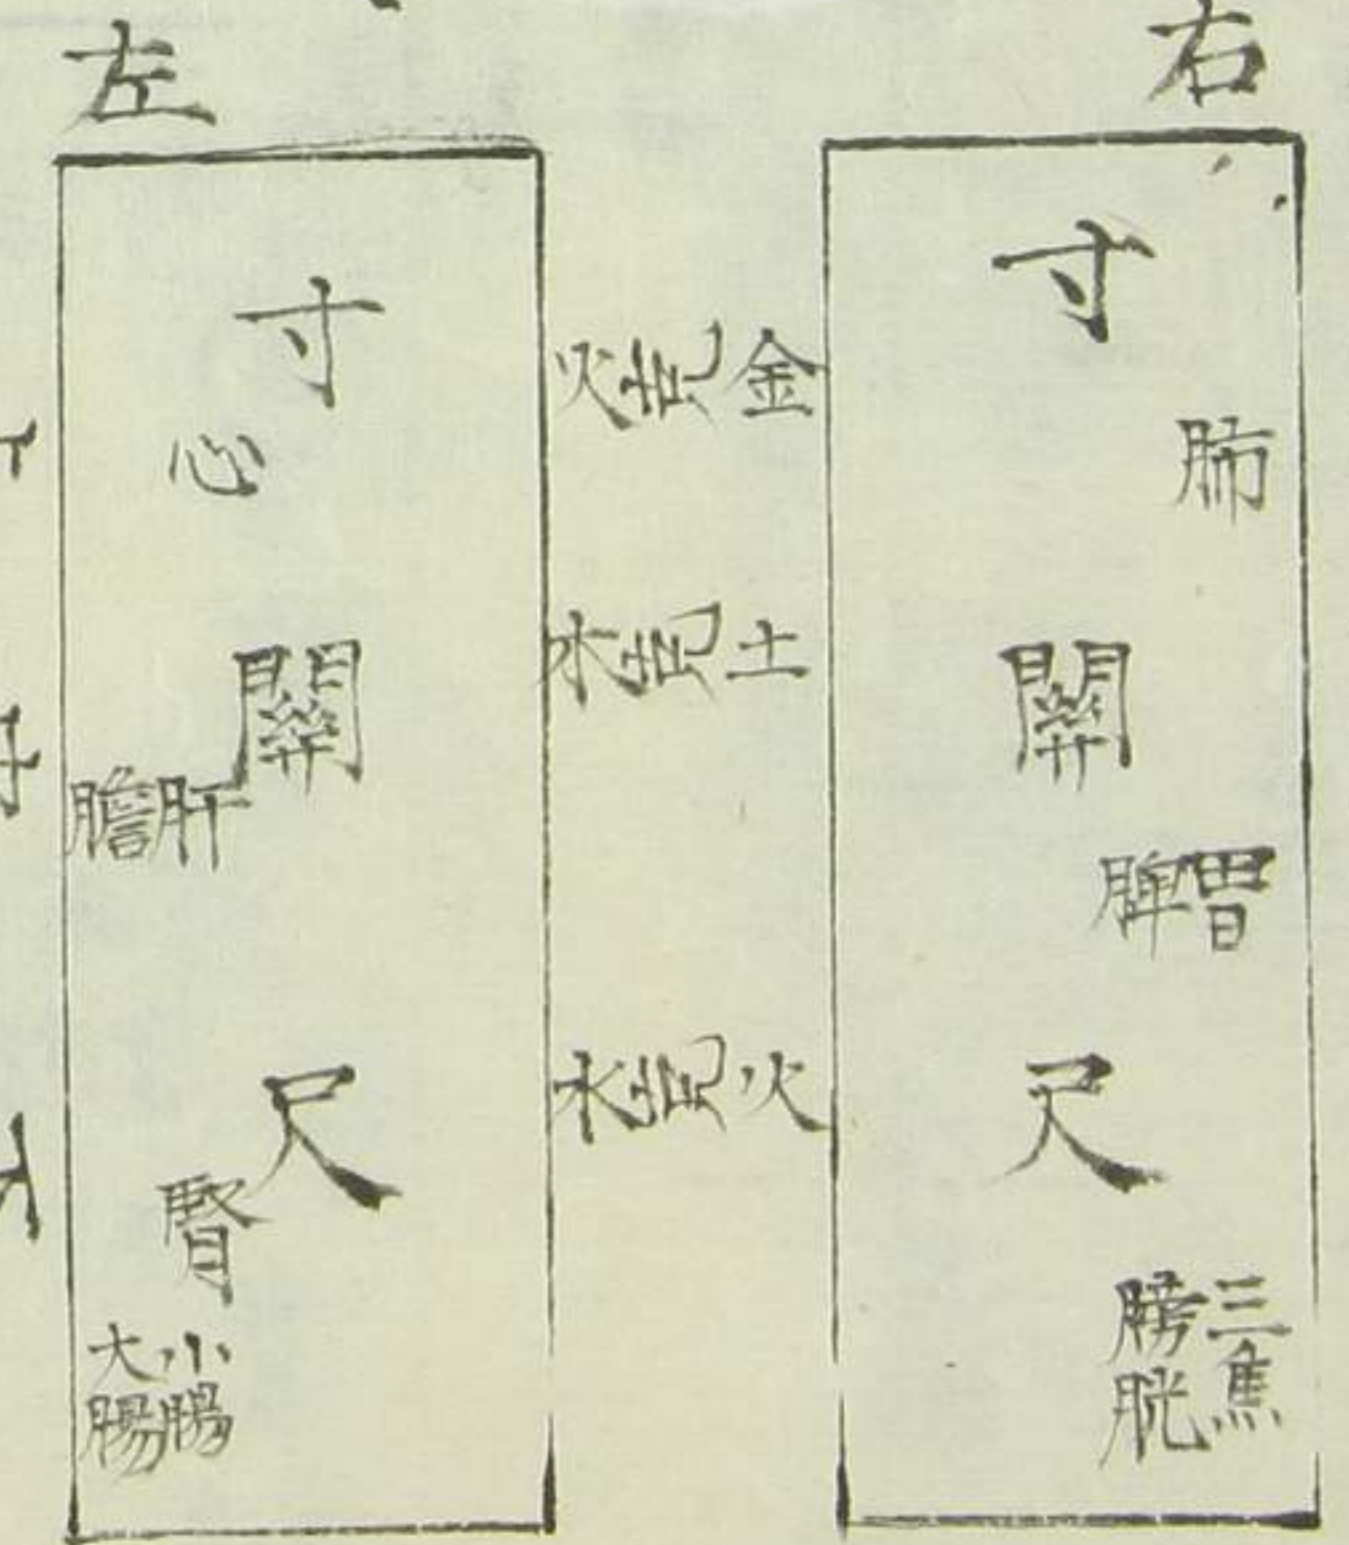 右
寸
肺
關
胃
脾
尺
三焦
膀胱
金
火
土
木
火
水
左
寸
心
關
肝
膽
尺
腎
小腸
大腸